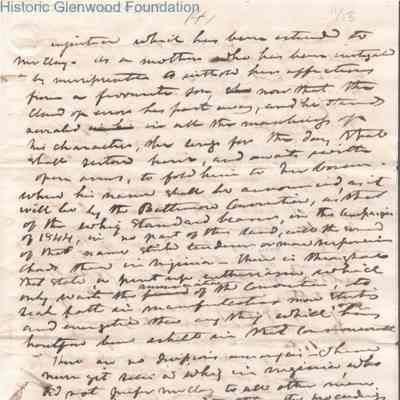 Historic Glenwood Foundation
injustice which has been extended to
Mr Clay. As a mother who has been instigated
by misrepresentation to withhold her affections
from a favourite son, now that the
cloud of error has past away, and he stands
revealed in all the manliness of
his character, she longs for the day, that
shall restore him, and awaits with
open arms, to fold him to her bosom.
When his name shall be announced, as it
will be by the Baltimore Convention, as that
of the Whig Standard bearer, in the Campaign
of 1844, in no part of this land, will the sound
of that name strike tenderer or more
chords than in Virginia. There is throughout
that State, a pent up enthusiasm which
only waits the of the Convention, to
break forth in manifestations more
and energetic than any thing which has
been in that Commonwealth
There are no divisions among us. I have
never yet seen a Whig in Virginia, who
did not prefer Mr Clay to all other men
the proceedings